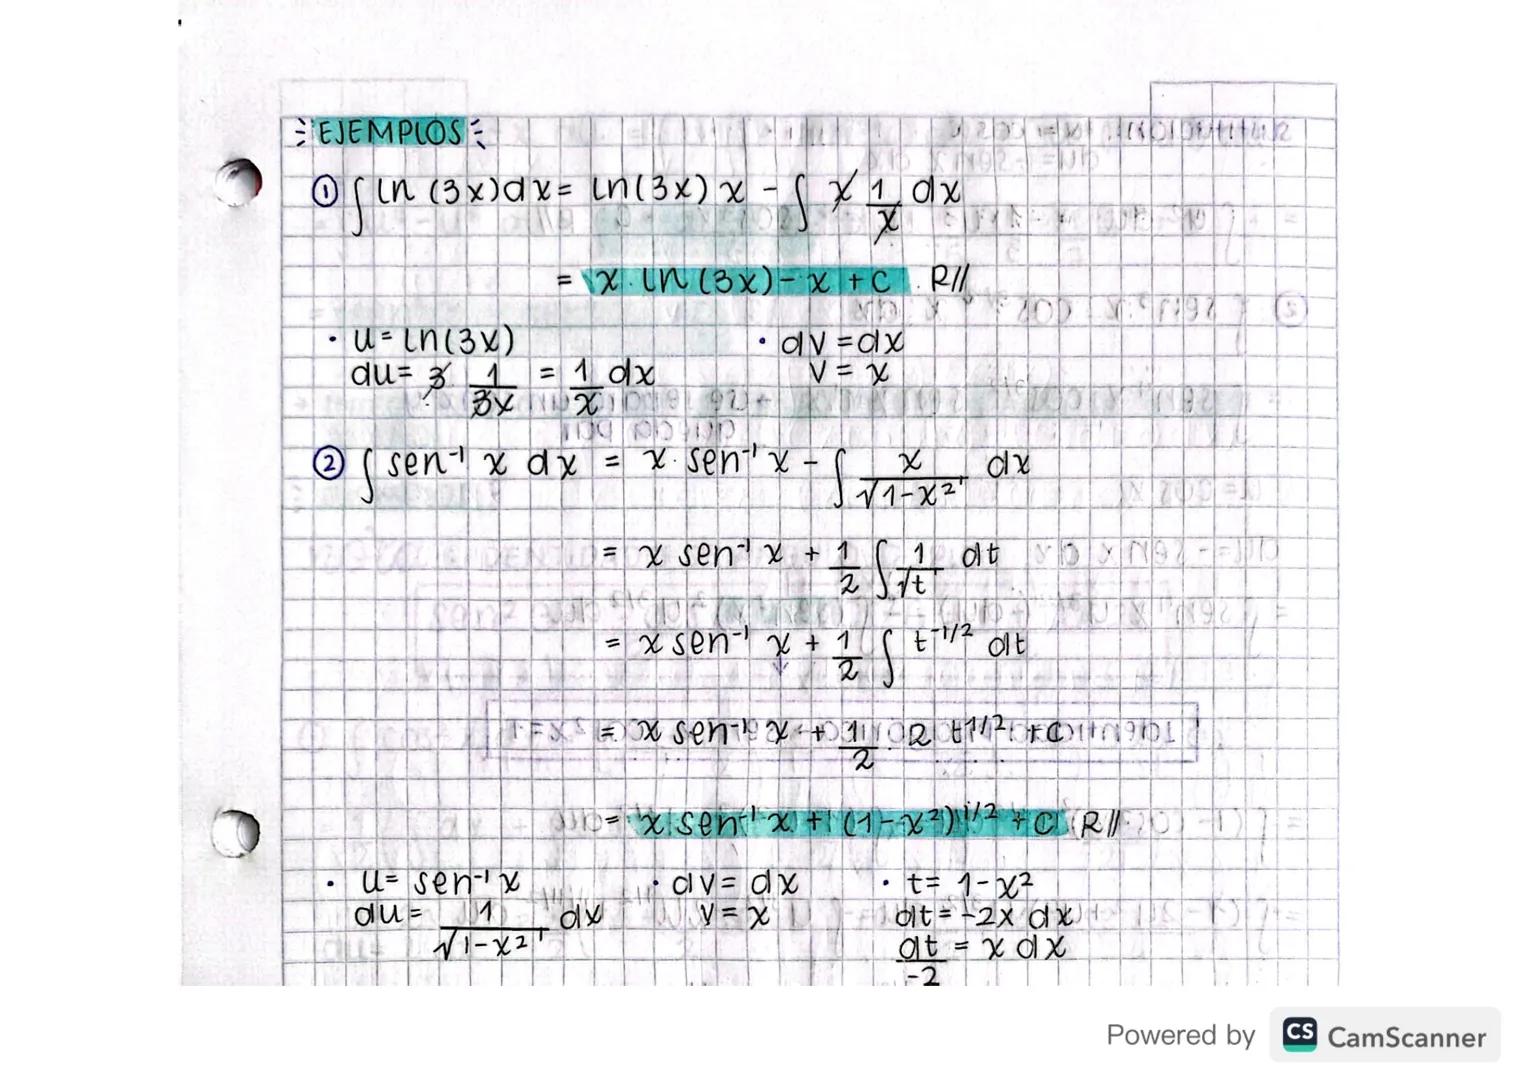 EJEMPLOS
① ∫ ln (3x)dx = ln(3x) x - ∫ x 1/x dx
= x · ln (3x) - x + C . R//
· u = ln(3x) · dv = dx
du = 3 1/3x = 1/x dx v = x
② ∫ sen⁻¹ x dx = x · sen⁻¹ x - ∫ x/√1-x² dx
= x sen⁻¹ x + 1/2 ∫ 1/√t dt
= x sen⁻¹ x + 1/2 ∫ t⁻¹/² dt
= x sen⁻¹ x + 1/2 · 2 t¹/² + C
= x sen⁻¹ x + (1-x²)¹/² + C R//
· u = sen⁻¹ x · dv = dx · t = 1-x²
du = 1/√1-x² dx v = x dt = -2x dx
dt/-2 = x dx
Powered by CS CamScanner